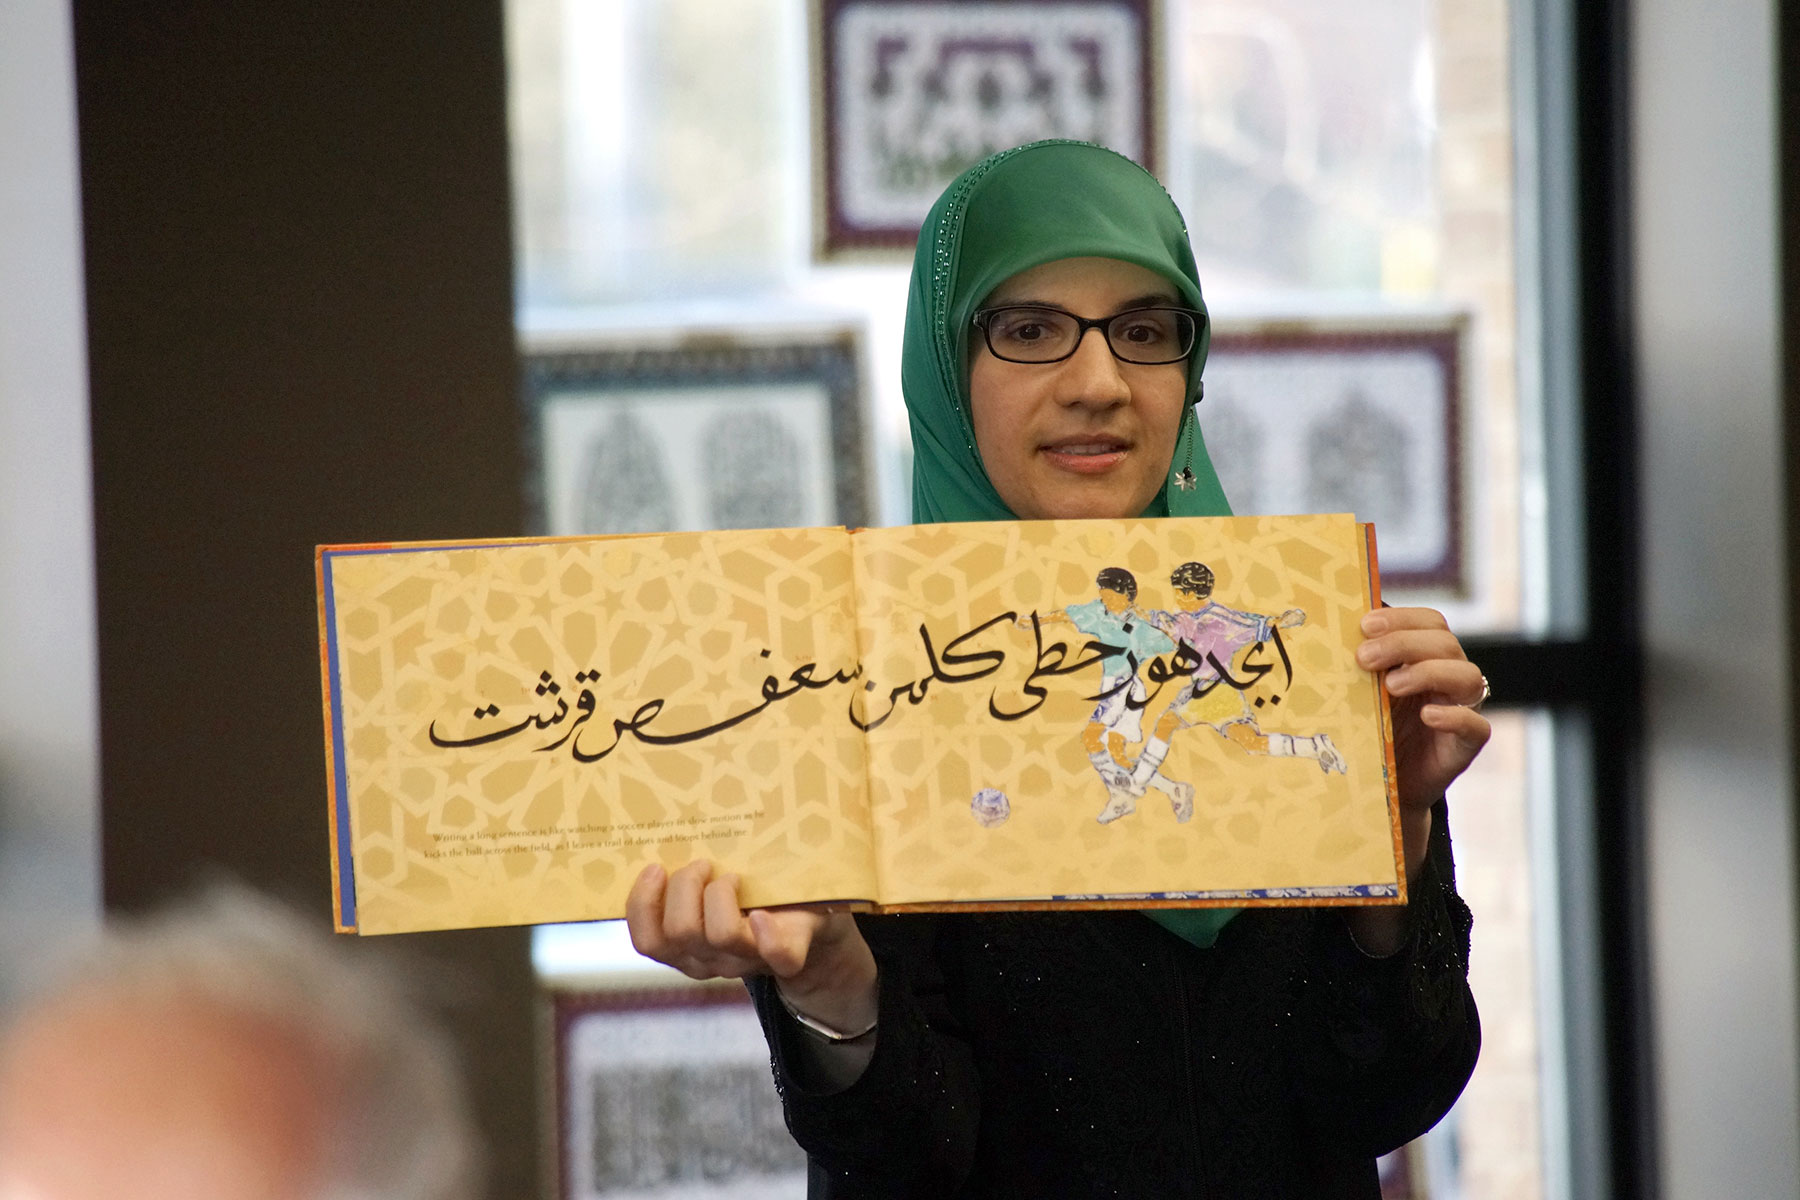 ابجد هوز حطي كلمن سعفص قرشت
Writing a long sentence is like watching a soccer player in slow motion as he
kicks the ball across the field, as I leave a trail of dots and loops behind me.